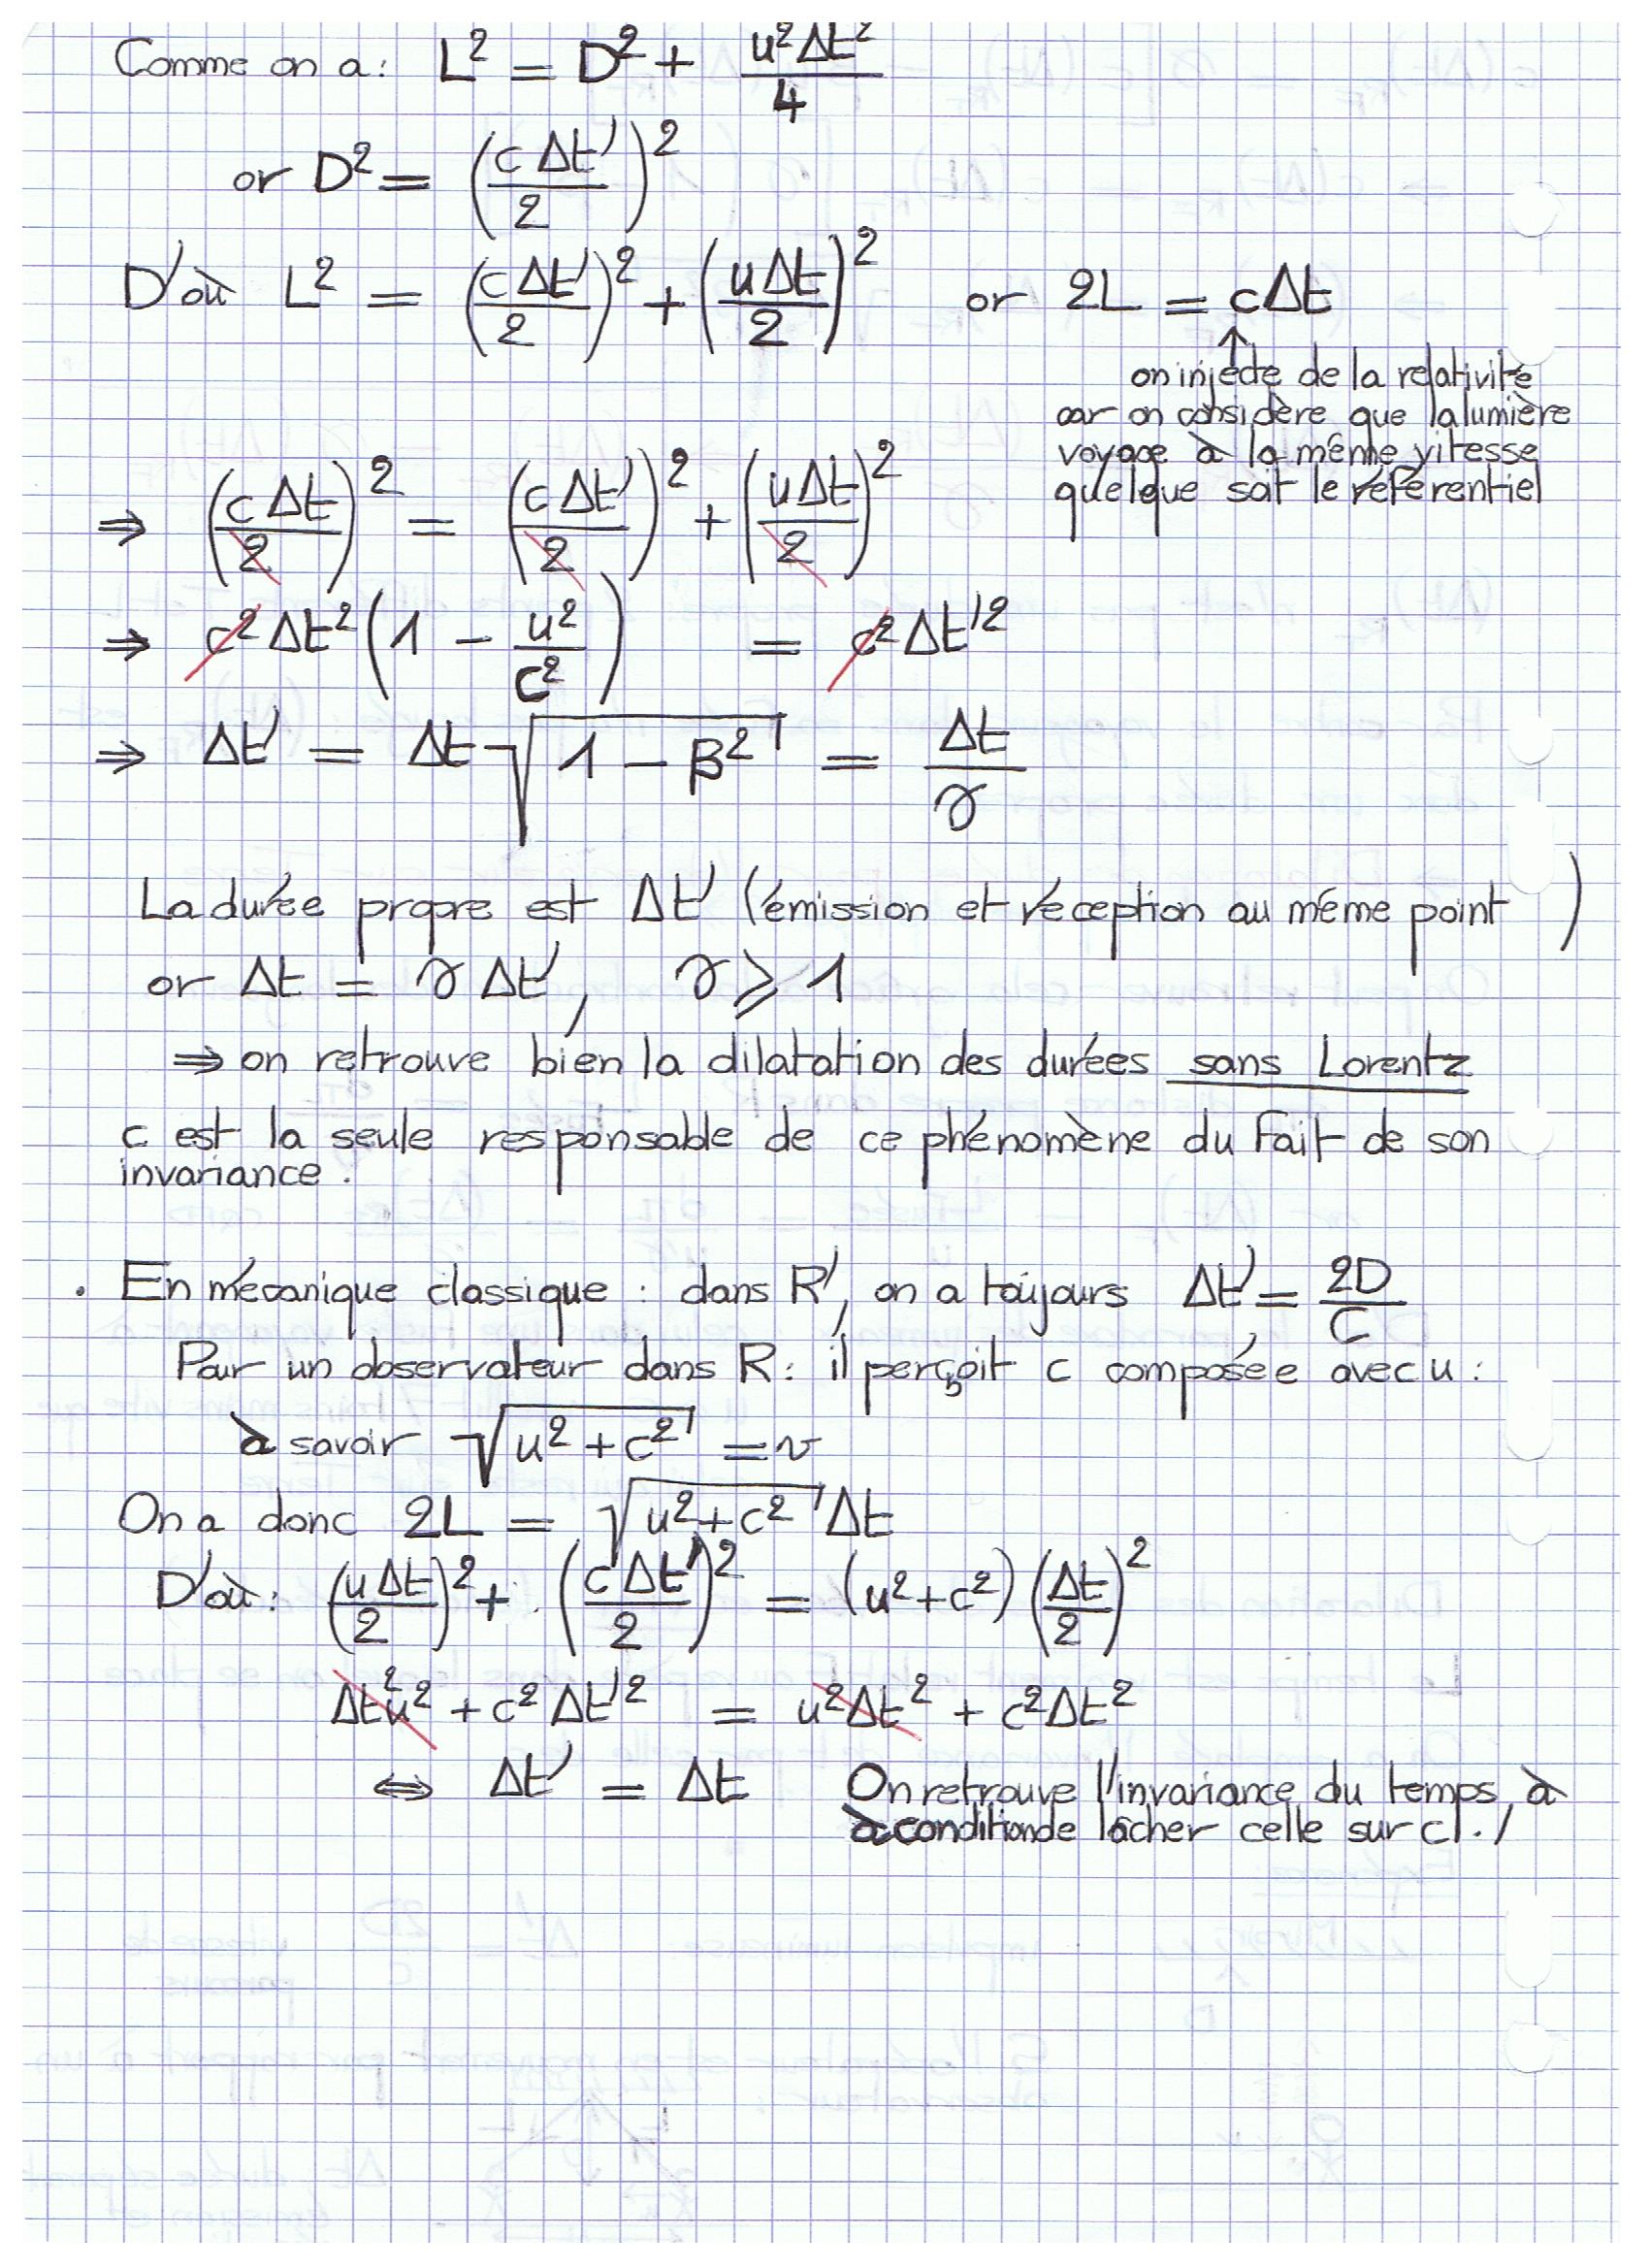 Comme on a : L² = D² + u²Δt²/4
or D² = (cΔt'/2)²
D'où L² = (cΔt'/2)² + (uΔt/2)² or 2L = cΔt
↑
on injecte de la relativité
car on considère que la lumière
voyage à la même vitesse
quelque soit le référentiel
⇒ (cΔt/2)² = (cΔt'/2)² + (uΔt/2)²
⇒ c²Δt²(1 - u²/c²) = c²Δt'²
⇒ Δt' = Δt√(1 - β²) = Δt/γ
La durée propre est Δt' (émission et réception au même point)
or Δt = γ Δt', γ ⩾ 1
⇒ on retrouve bien la dilatation des durées sans Lorentz
c est la seule responsable de ce phénomène du fait de son
invariance.
. En mécanique classique : dans R', on a toujours Δt' = 2D/C,
Pour un observateur dans R : il perçoit c composée avec u :
à savoir √(u² + c²) = v
On a donc 2L = √(u² + c²) Δt
D'où : (uΔt/2)² + (cΔt'/2)² = (u² + c²)(Δt/2)²
Δt²u² + c²Δt'² = u²Δt² + c²Δt²
⇔ Δt' = Δt On retrouve l'invariance du temps, à
à condition de lâcher celle sur c ! . /